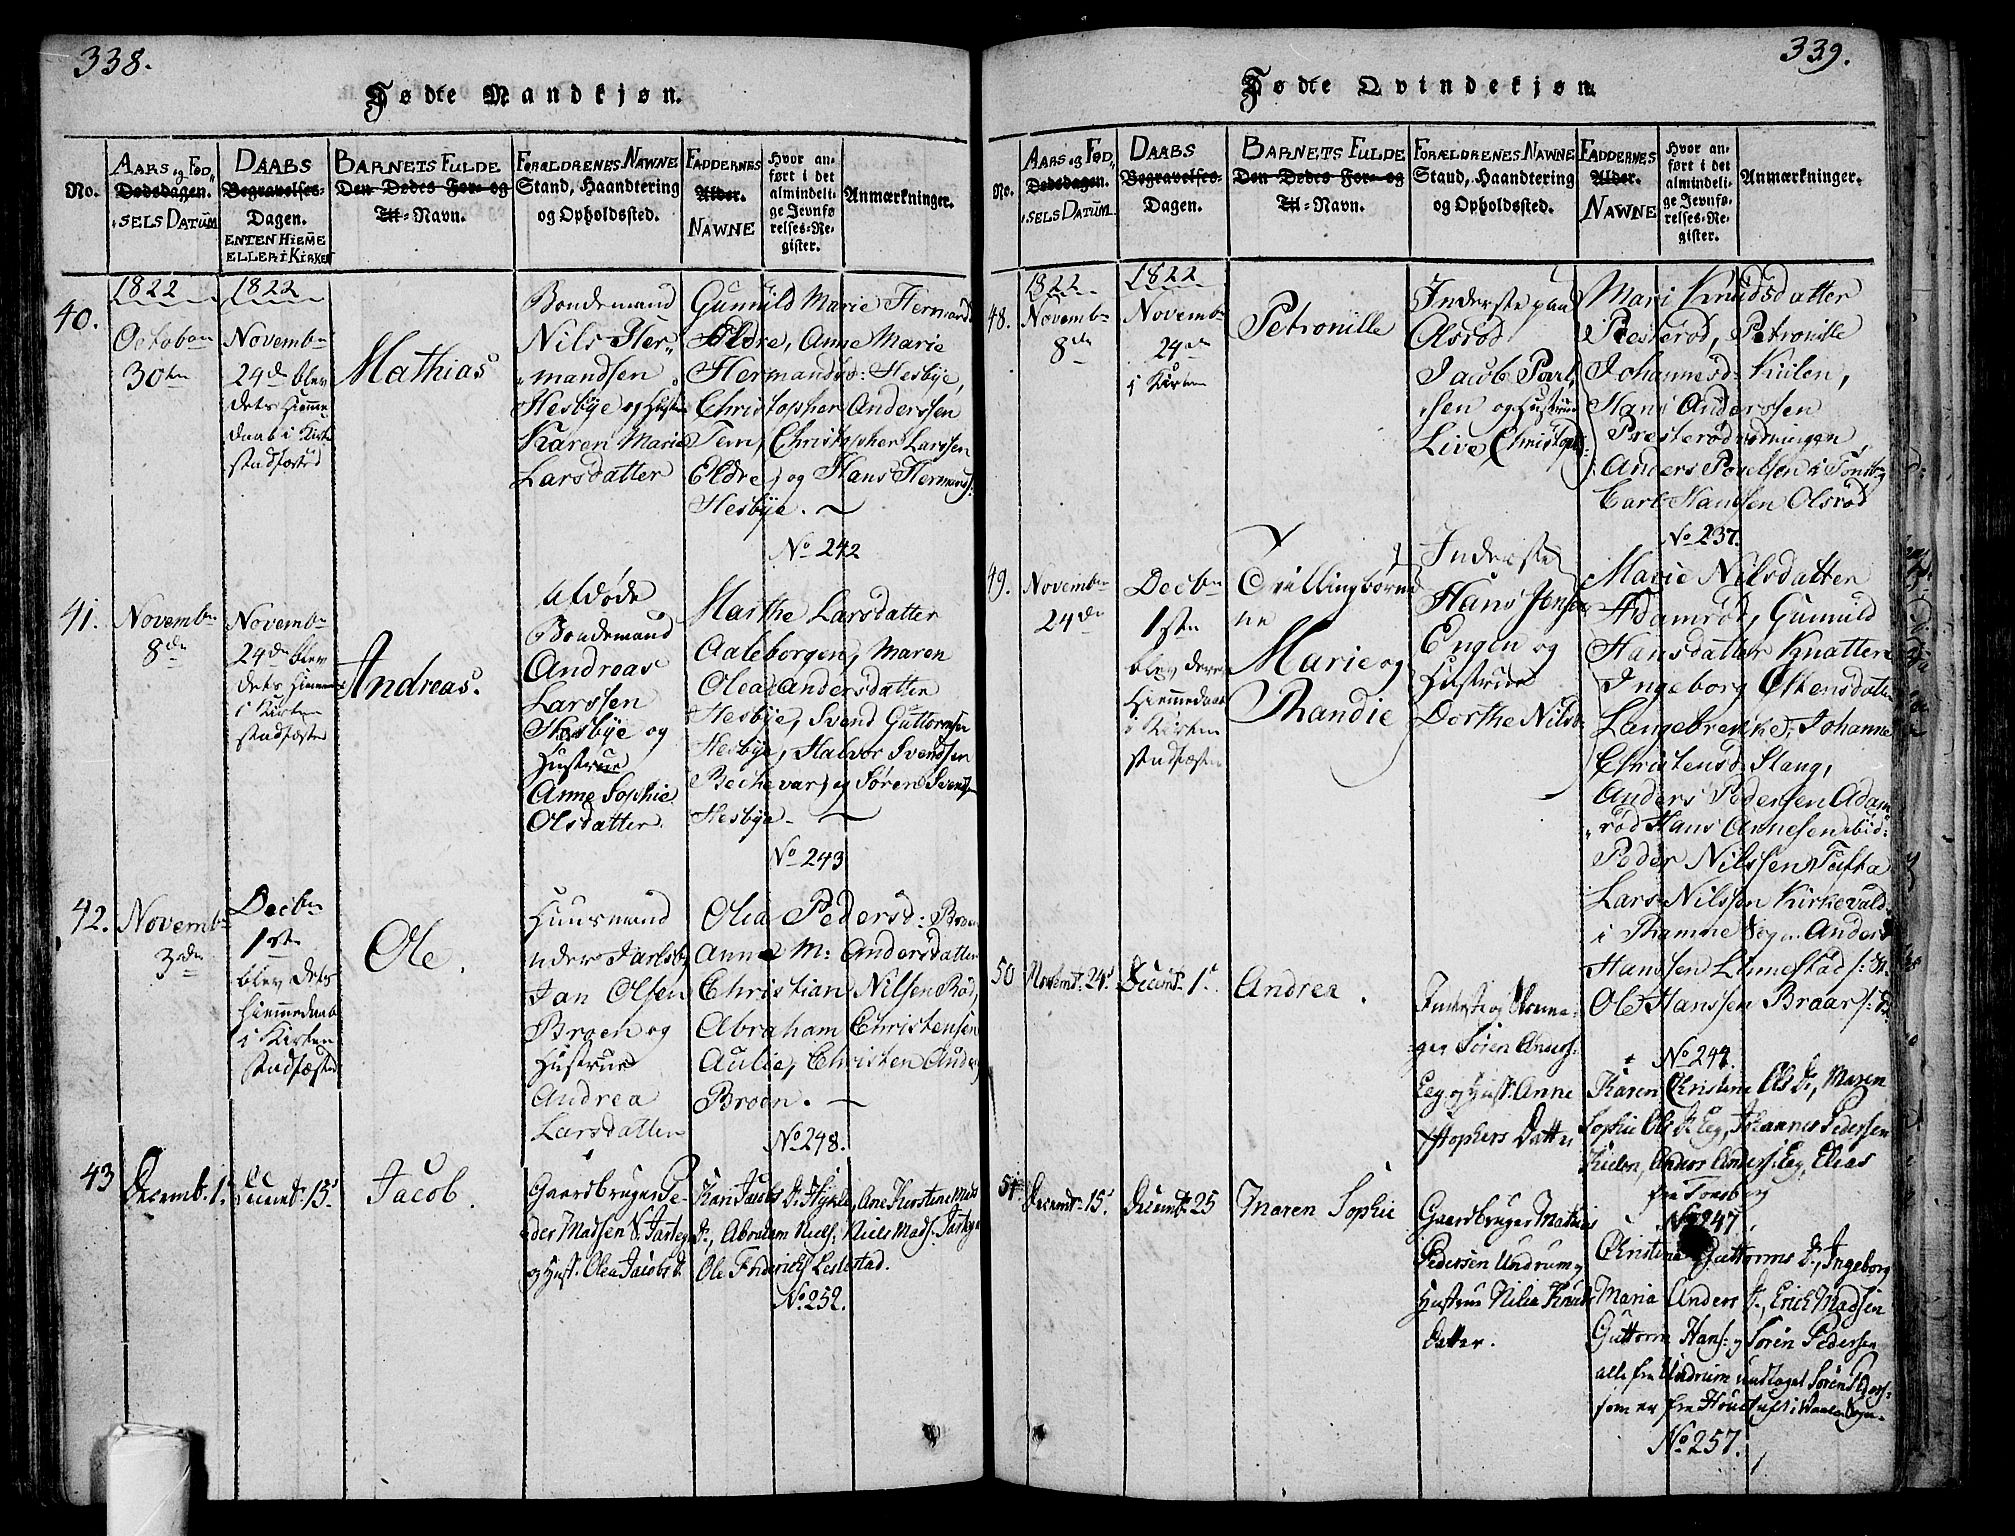 338.
Fødte Mandkjøn.
No.
AARS og FØD„
Dødsdagen.
„SELS DATUM
DAABS
Begravelses-
Dagen.
ENTEN HIEME
ELLER I KIRKEN
BARNETS FULDE
Den Dødes For- og
Til-Navn.
FORÆLDRENES NAWNE
Stand, Haandtering
og Opholdssted.
FADDERNES
Alder.
NAWNE
Hvor an-
ført i det
almindeli-
ge Jevnfø-
relses-Re-
gister.
Anmærkninger.
40.
1822
Octoben
30ten
1822
Novembn
24de blev
dets Hiemme
daab i Kirk
stadfæsted
Mathias
Bondemand
Nils Her„
„mandsen
Hesbye og Hustr
Karen Marie
Larsdatter
Gunnild Marie Hermands
Eldre, Anne Marie
Hermandsd: Hesbye,
Christopher Anderssen
Tem, Christopher Larssen
Eldre, og Hans Hermands:
Hesbye. ~
No 242
41.
Novembn
8de
Novembn
24de blev
dets Hiemme
i Kirken
stadfæstet
Andreas.
Afdøde
Bondemand
Andreas
Larssen
Hesbye og
Hustrue
Anne Sophie
Olsdatter
Marthe Larsdatter
Aaleborgen, Maren
Olea Andersdatter
Hesbye, Svend Guttormsen
Hesbye, Halvor Svendsen
Bechevar, og Søren Svends
Hesbye. ~
No 243
42.
Novembn
3de
Decbn
1ste
blev dets
Hiemmedaab
i Kirken
stadfæstet
Ole.
Huusmand
under Jarlsb
Jan Olsen
Broen og
Hustrue
Andrea
Larsdatter
Olea Pedersd: Broen
Anne M: Andersdatter
Christian Nilsen Rød,
Abraham Christensen
Aulie, Christen Anders
Broen. ~
No 248.
43
Decemb. 1.
Decembr 15d
Jacob.
Gaardbruger Pe-
der Madsen N. Jarteg
og Hust. Olea Jacobs d.
Kari Jacobs Dr Hykle, Ane Kirstine Mads
Dr, Abraham Niels: Niels Mads: Jarteg
Ole Fridrichs Leilestad.
No 252.
339.
Fødte Qvindekjøn
No.
AARS og FØD„
Dødsdagen.
„SELS DATUM
DAABS
Begravelses-
Dagen.
BARNETS FULDE
Den Dødes For- og
Til-Navn.
FORÆLDRENES NAWNE
Stand, Haandtering
og Opholdssted.
FADDERNES
Alder.
NAWNE
Hvor an-
ført i det
almindeli-
ge Jevnfø-
relses-Re-
gister.
Anmærkninger.
48.
1822
Novembn
8de
1822
Novembn
24de
i Kirken
Petronille
Inderste paa
Olsrød
Jacob Povl„
„sen og Hustrue
Live Christoph:
Mari Knudsdatter
Presterød, Petronille
Johannesd: Kiilen,
Hans Anderssen
Presterødødningen,
Anders Povelsen i Tønsb
Carl Hansen Olsrød
No 237.
49.
Novembn
24de
Decbn
1ste
blev deres
Hiemmedaab
i Kirken
stadfæstet
Tvillingbørne
ne
Marie og
Randie
Inderste
Hans Jensen
Engen og
Hustrue
Dorthe Nilsd:
Marie Nilsdatter
Adamrød, Gunnild
Hansdatter Knatten
Ingeborg Ellensdatter
Langebrekke, Johanne
Christensd. Slang,
Anders Pedersen Adam
„rød Hans Annesen ibid:
Peder Nilssen Tufta
Lars Nilssen Kirkevald
i Ramme Sogn Anders
Hanssen Linnestad
Ole Hanssen Braar
No 244.
50
Novembr 24d
Decembr 1d
Andrea.
Inderste og Skoma-
ger Søren Anders:
Eeg og Hust. Anne
Christophers Datter
Karen Christine Ols Dr, Maren
Sophie Ols Dr Eeg, Johannes Pedersen
Kielen, Anders Anders: Eeg, Elias
fra Tonsberg
No 247
51
Decembr 15d
Decembr 25
Maren Sophie
Gaardbruger Mathias
Pedersen Undrum og
Hustrue Nilia Knuds
Datter.
Christine Guttorms Dr, Ingeborg
Maria Anders Dr, Erich Madsen
Guttorm Hans: og Søren Pedersen
alle fra Undrum undtaget Søren Peders:
som er fra Houetuft i Vaale Sogn
No 257.